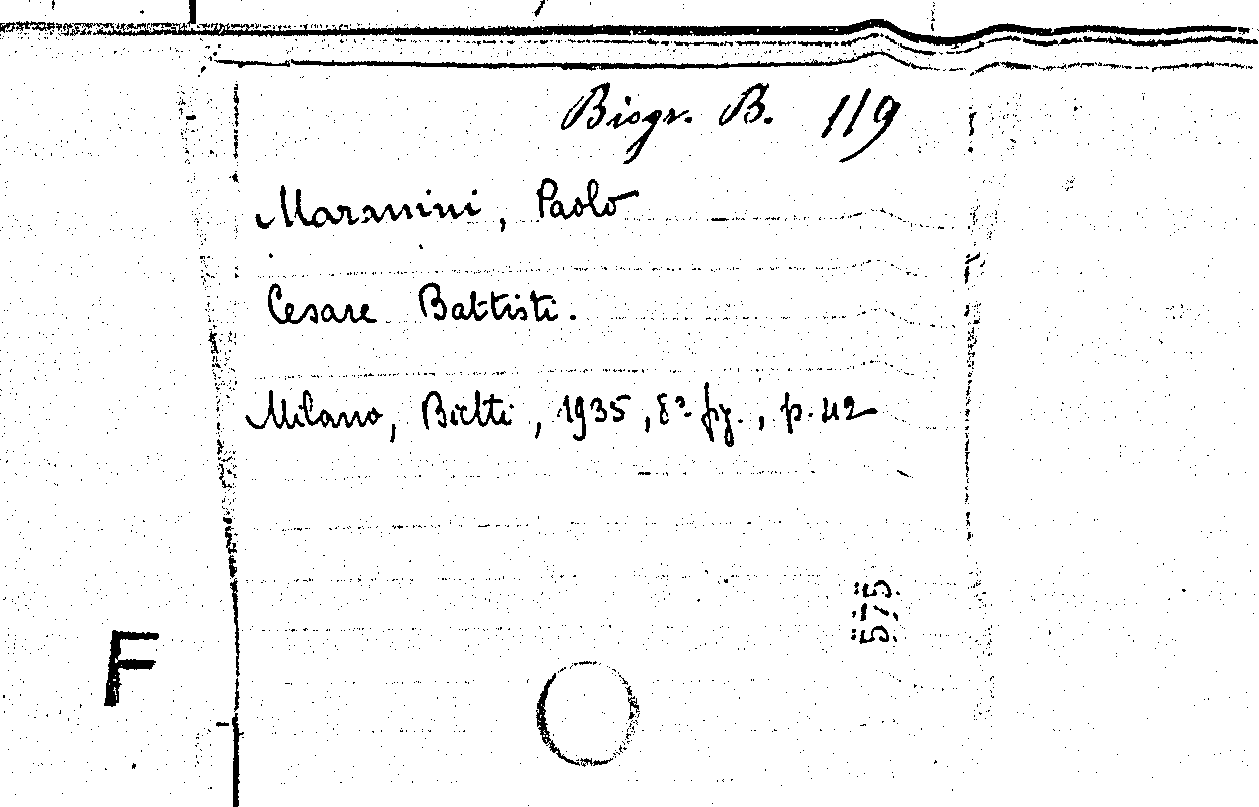 Biogr. B. 119
Maranini, Paolo
Cesare Battisti.
Milano, Bietti, 1935, 8º fig., p. 42
575
F